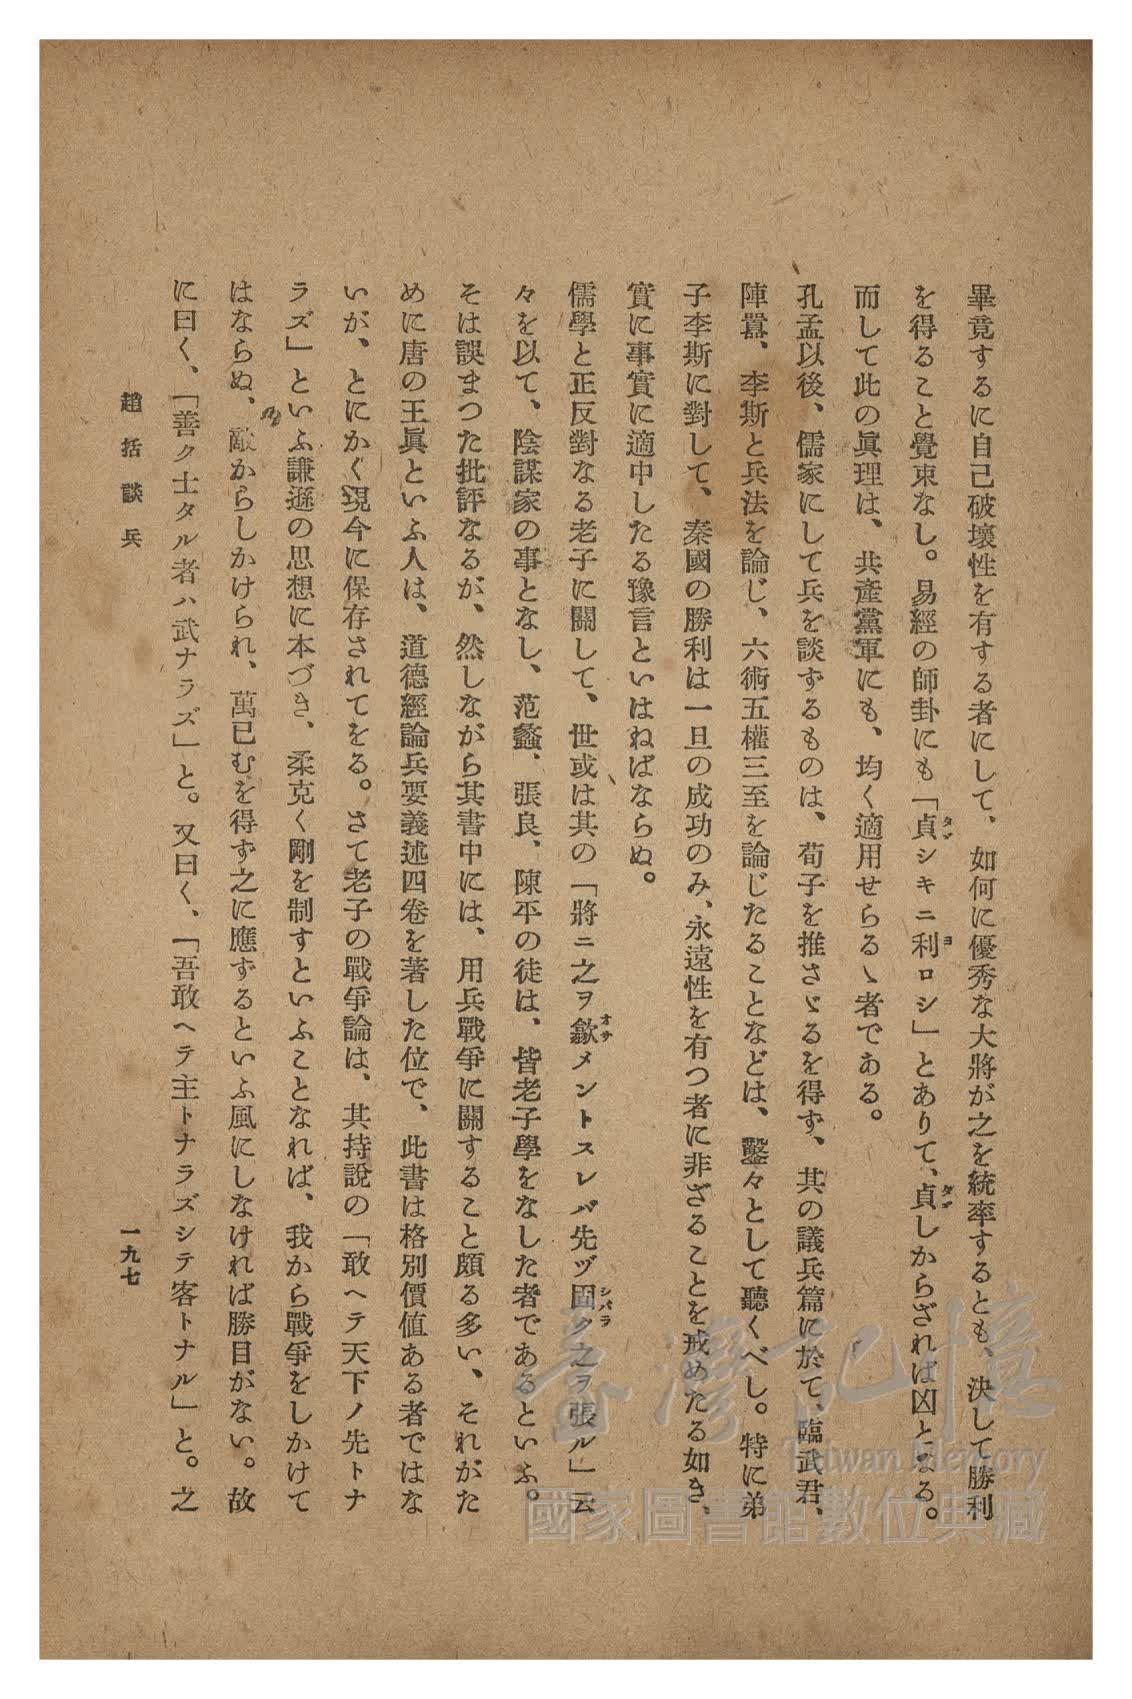 畢竟するに自己破壞性を有する者にして、如何に優秀な大將が之を統率するとも、決して勝利
を得ること覺束なし。易經の師卦にも「貞シキニ利ロシ」とありて、貞しからざれば凶となる。
而して此の眞理は、共產黨軍にも、均く適用せらるゝ者である。
孔孟以後、儒家にして兵を談ずるものは、荀子を推さゞるを得ず、其の議兵篇に於て、臨武君、
陣囂、李斯と兵法を論じ、六術五權三至を論じたることなどは、鑿々として聽くべし。特に弟
子李斯に對して、秦國の勝利は一旦の成功のみ、永遠性を有つ者に非ざることを戒めたる如き、
實に事實に適中したる豫言といはねばならぬ。
儒學と正反對なる老子に關して、世或は其の「將ニ之ヲ歙メントスレバ先ヅ固ク之ヲ張ル」云
々を以て、陰謀家の事となし、范蠡、張良、陳平の徒は、皆老子學をなした者であるといふ。
そは誤まつた批評なるが、然しながら其書中には、用兵戰爭に關すること頗る多い、それがた
めに唐の王眞といふ人は、道德經論兵要義述四卷を著した位で、此書は格別價値ある者ではな
いが、とにかく現今に保存されてをる。さて老子の戰爭論は、其持說の「敢ヘテ天下ノ先トナ
ラズ」といふ謙遜の思想に本づき、柔克く剛を制すといふことなれば、我から戰爭をしかけて
はならぬ、敵からしかけられ、萬已むを得ず之に應ずるといふ風にしなければ勝目がない。故
に曰く、「善ク士タル者ハ武ナラズ」と。又曰く、「吾敢ヘテ主トナラズシテ客トナル」と。之
趙括談兵
一九七
臺灣記憶
Taiwan Memory
國家圖書館數位典藏